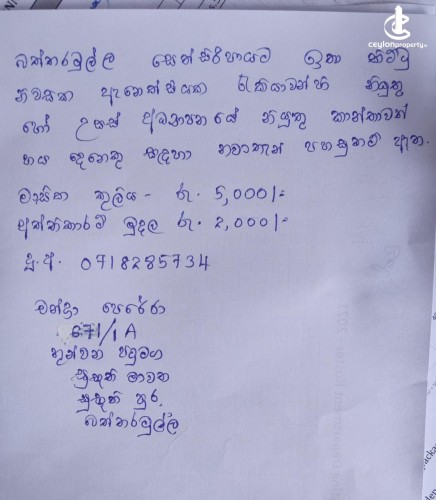 ceylonproperty.lk
බත්තරමුල්ල සෙත්සිරිපායට ඉතා කිට්ටු
නිවසක ඇනෙක්සියක රැකියාවන්හි නියුතු
හෝ උසස් අධ්‍යාපනයේ නියුතු කාන්තාවන්
හය දෙනෙකු සඳහා නවාතැන් පහසුකම් ඇත.
මාසික කුලිය - රු. 5,000/=
අත්තිකාරම් මුදල රු. 2,000/=
දු.අ. 0718285734
චන්ද්‍රා පෙරේරා
671/1A
තුන්වන පටුමග
මාවත
පුර.
බත්තරමුල්ල